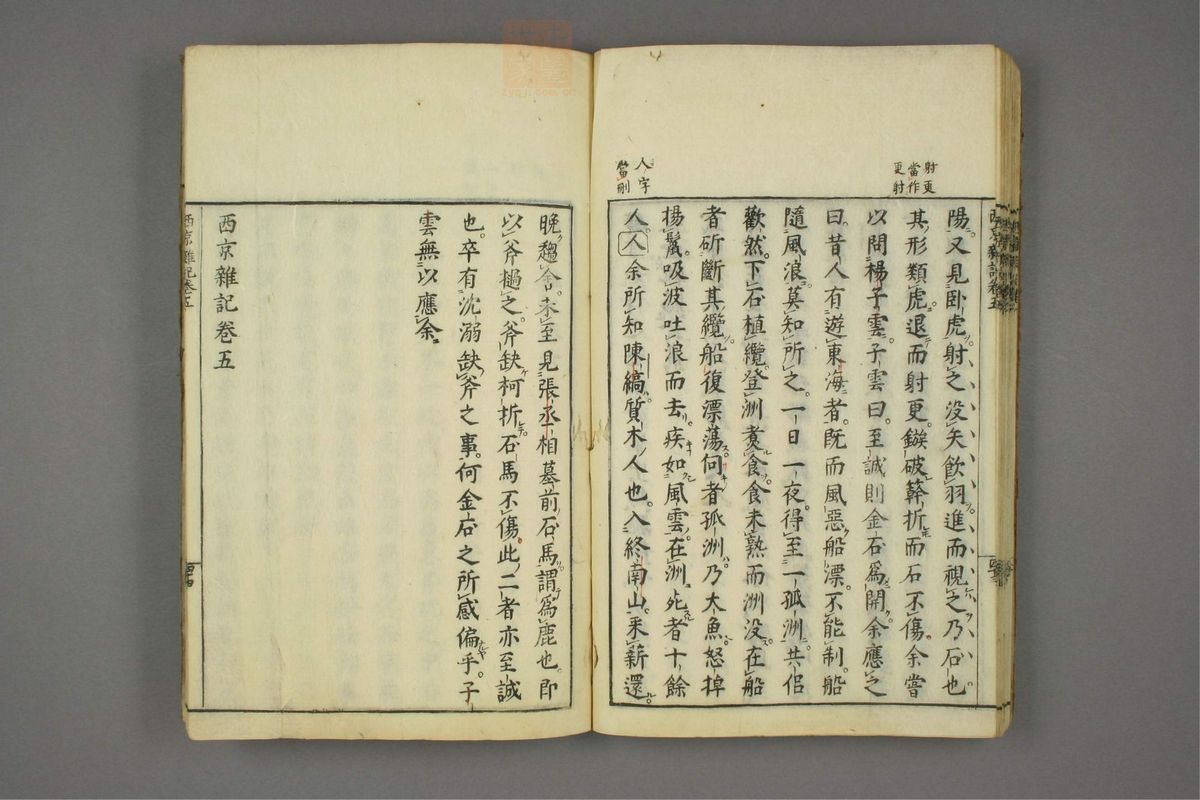 射更
當作
更射
人字
當刪
陽又見卧虎射之没矢飲羽進而視之乃石也
其形類虎退而射更鏃破簳折而石不傷余嘗
以問楊子雲子雲曰至誠則金石爲開余應之
曰昔人有遊東海者既而風惡船漂不能制船
隨風浪莫知所之一日一夜得至一孤洲共侶
歡然下石植纜登洲煮食食未熟而洲没在船
者斫斷其纜船復漂蕩向者孤洲乃大魚怒掉
揚鬣吸波吐浪而去疾如風雲在洲死者十餘
人人余所知陳縞質木人也入終南山采薪還
晚趨舍未至見張丞相墓前石馬謂爲鹿也即
以斧撾之斧缺柯折石馬不傷此二者亦至誠
也卒有沈溺缺斧之事何金石之所感偏乎子
雲無以應余
西京雜記卷五
西京雜記卷五
西京雜記卷五